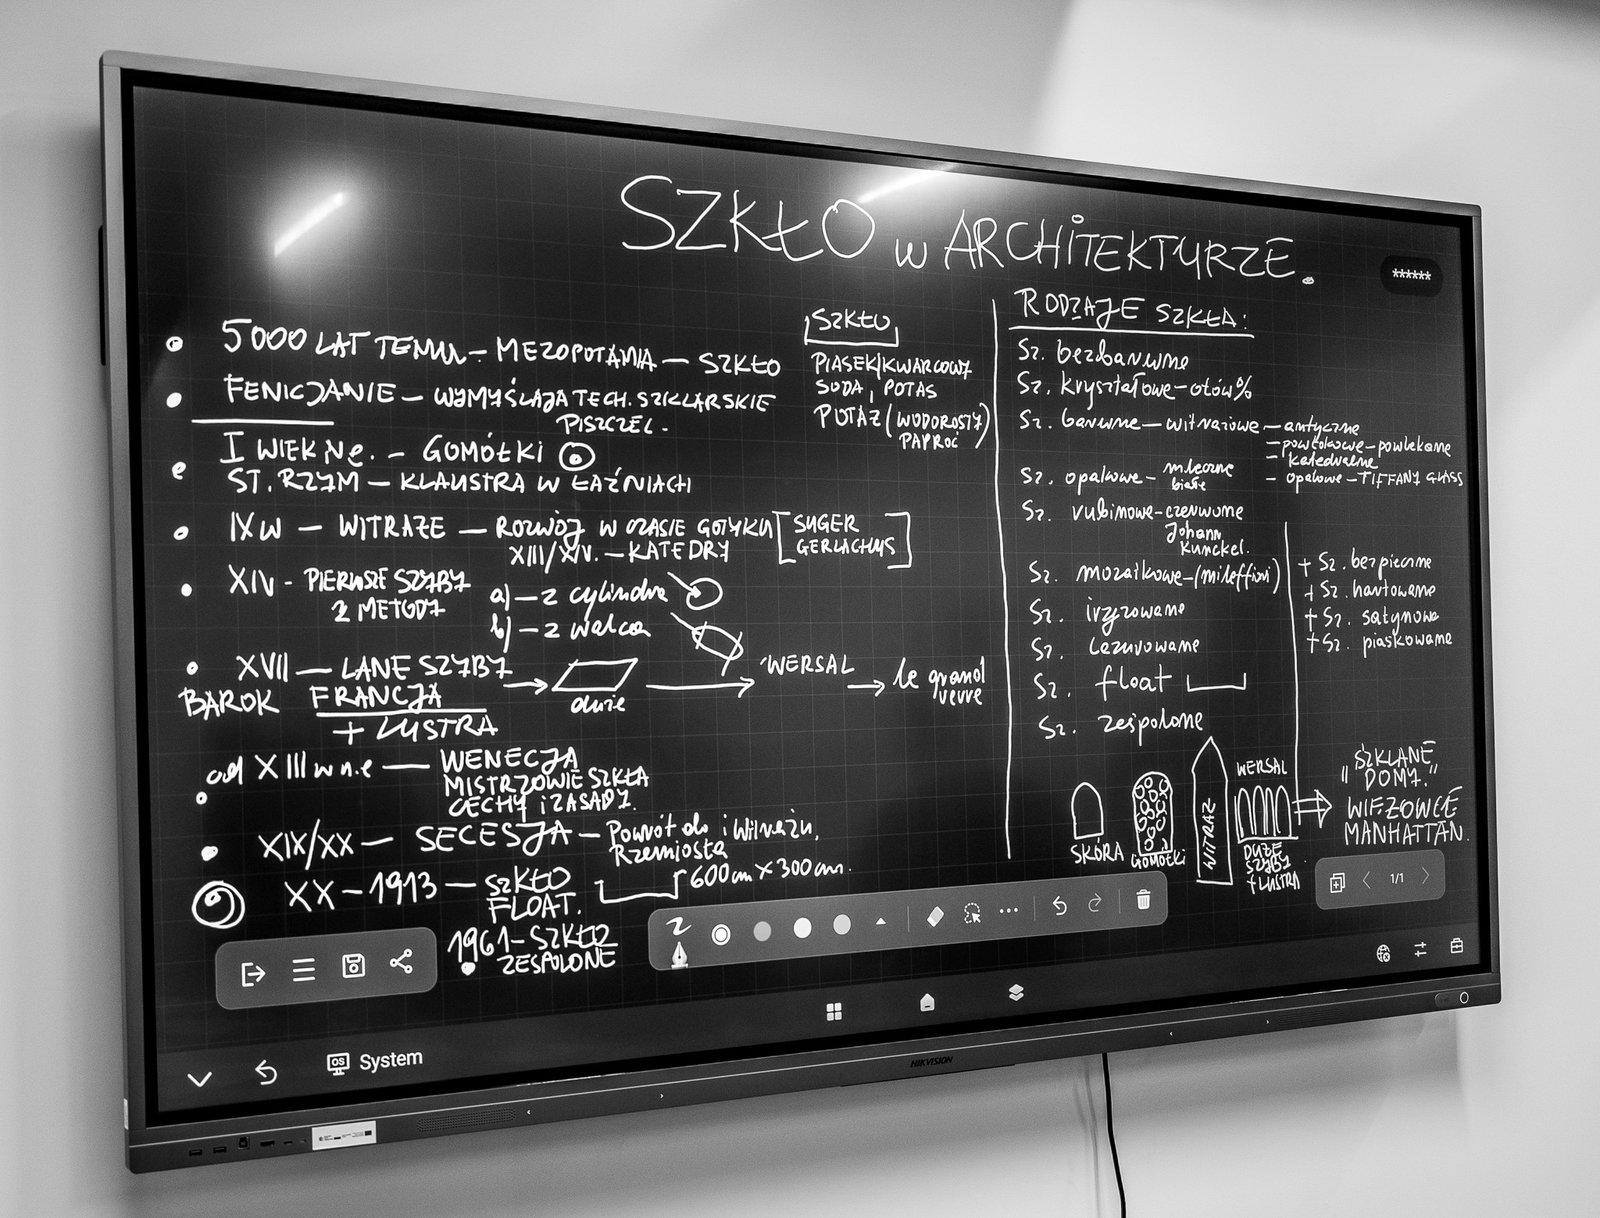 SZKŁO w ARCHITEKTURZE.
******
• 5000 LAT TEMU – MEZOPOTAMIA – SZKŁO
• FENICJANIE – WYMYŚLAJA TECH. SZKLARSKIE
PISZCZEL.
I WIEK Ne. – GOMÓŁKI
• ST. RZYM – KLAUSTRA W ŁAŹNIACH
• IX w – WITRAŻE – ROZWÓJ W CZASIE GOTYKU [SUGER
XIII/XIV. – KATEDRY GERLACHUS]
• XIV - PIERWSZE SZYBY
2 METODY
a) – z cylindra
b) – z walca
• XVII – LANE SZYBY → duże → WERSAL → le grand
verre
BAROK FRANCJA
+ LUSTRA
• od XIII w n.e – WENECJA
MISTRZOWIE SZKŁA
CECHY i ZASADY.
• XIX/XX – SECESJA – Powrót do i Witrażu,
Rzemiosła
XX – 1913 – SZKŁO
FLOAT.
600 cm x 300 cm.
1961 – SZKŁO
• ZESPOLONE
SZKŁO
PIASEK/KWARCOWY
SODA, POTAS
POTAŻ (WODOROSTY
PAPROĆ)
RODZAJE SZKŁA:
Sz. bezbarwne
Sz. kryształowe – ołów%
Sz. barwne – witrażowe – antyczne
– powłokowe – powlekane
– katedralne
– opalowe – TIFFANY GLASS
Sz. opalowe – mleczne
białe
Sz. rubinowe – czerwone
Johann
Kunckel.
Sz. mozaikowe – (mileffiori)
Sz. iryzowane
Sz. Lazurowane
Sz. float
Sz. zespolone
+ Sz. bezpieczne
+ Sz. hartowane
+ Sz. satynowe
+ Sz. piaskowane
SKÓRA
GOMÓŁKI
WITRAŻ
WERSAL
DUŻE
SZYBY
+ LUSTRA
"SZKLANE
DOMY."
WIEŻOWCE
MANHATTAN.
1/1
System
HIKVISION